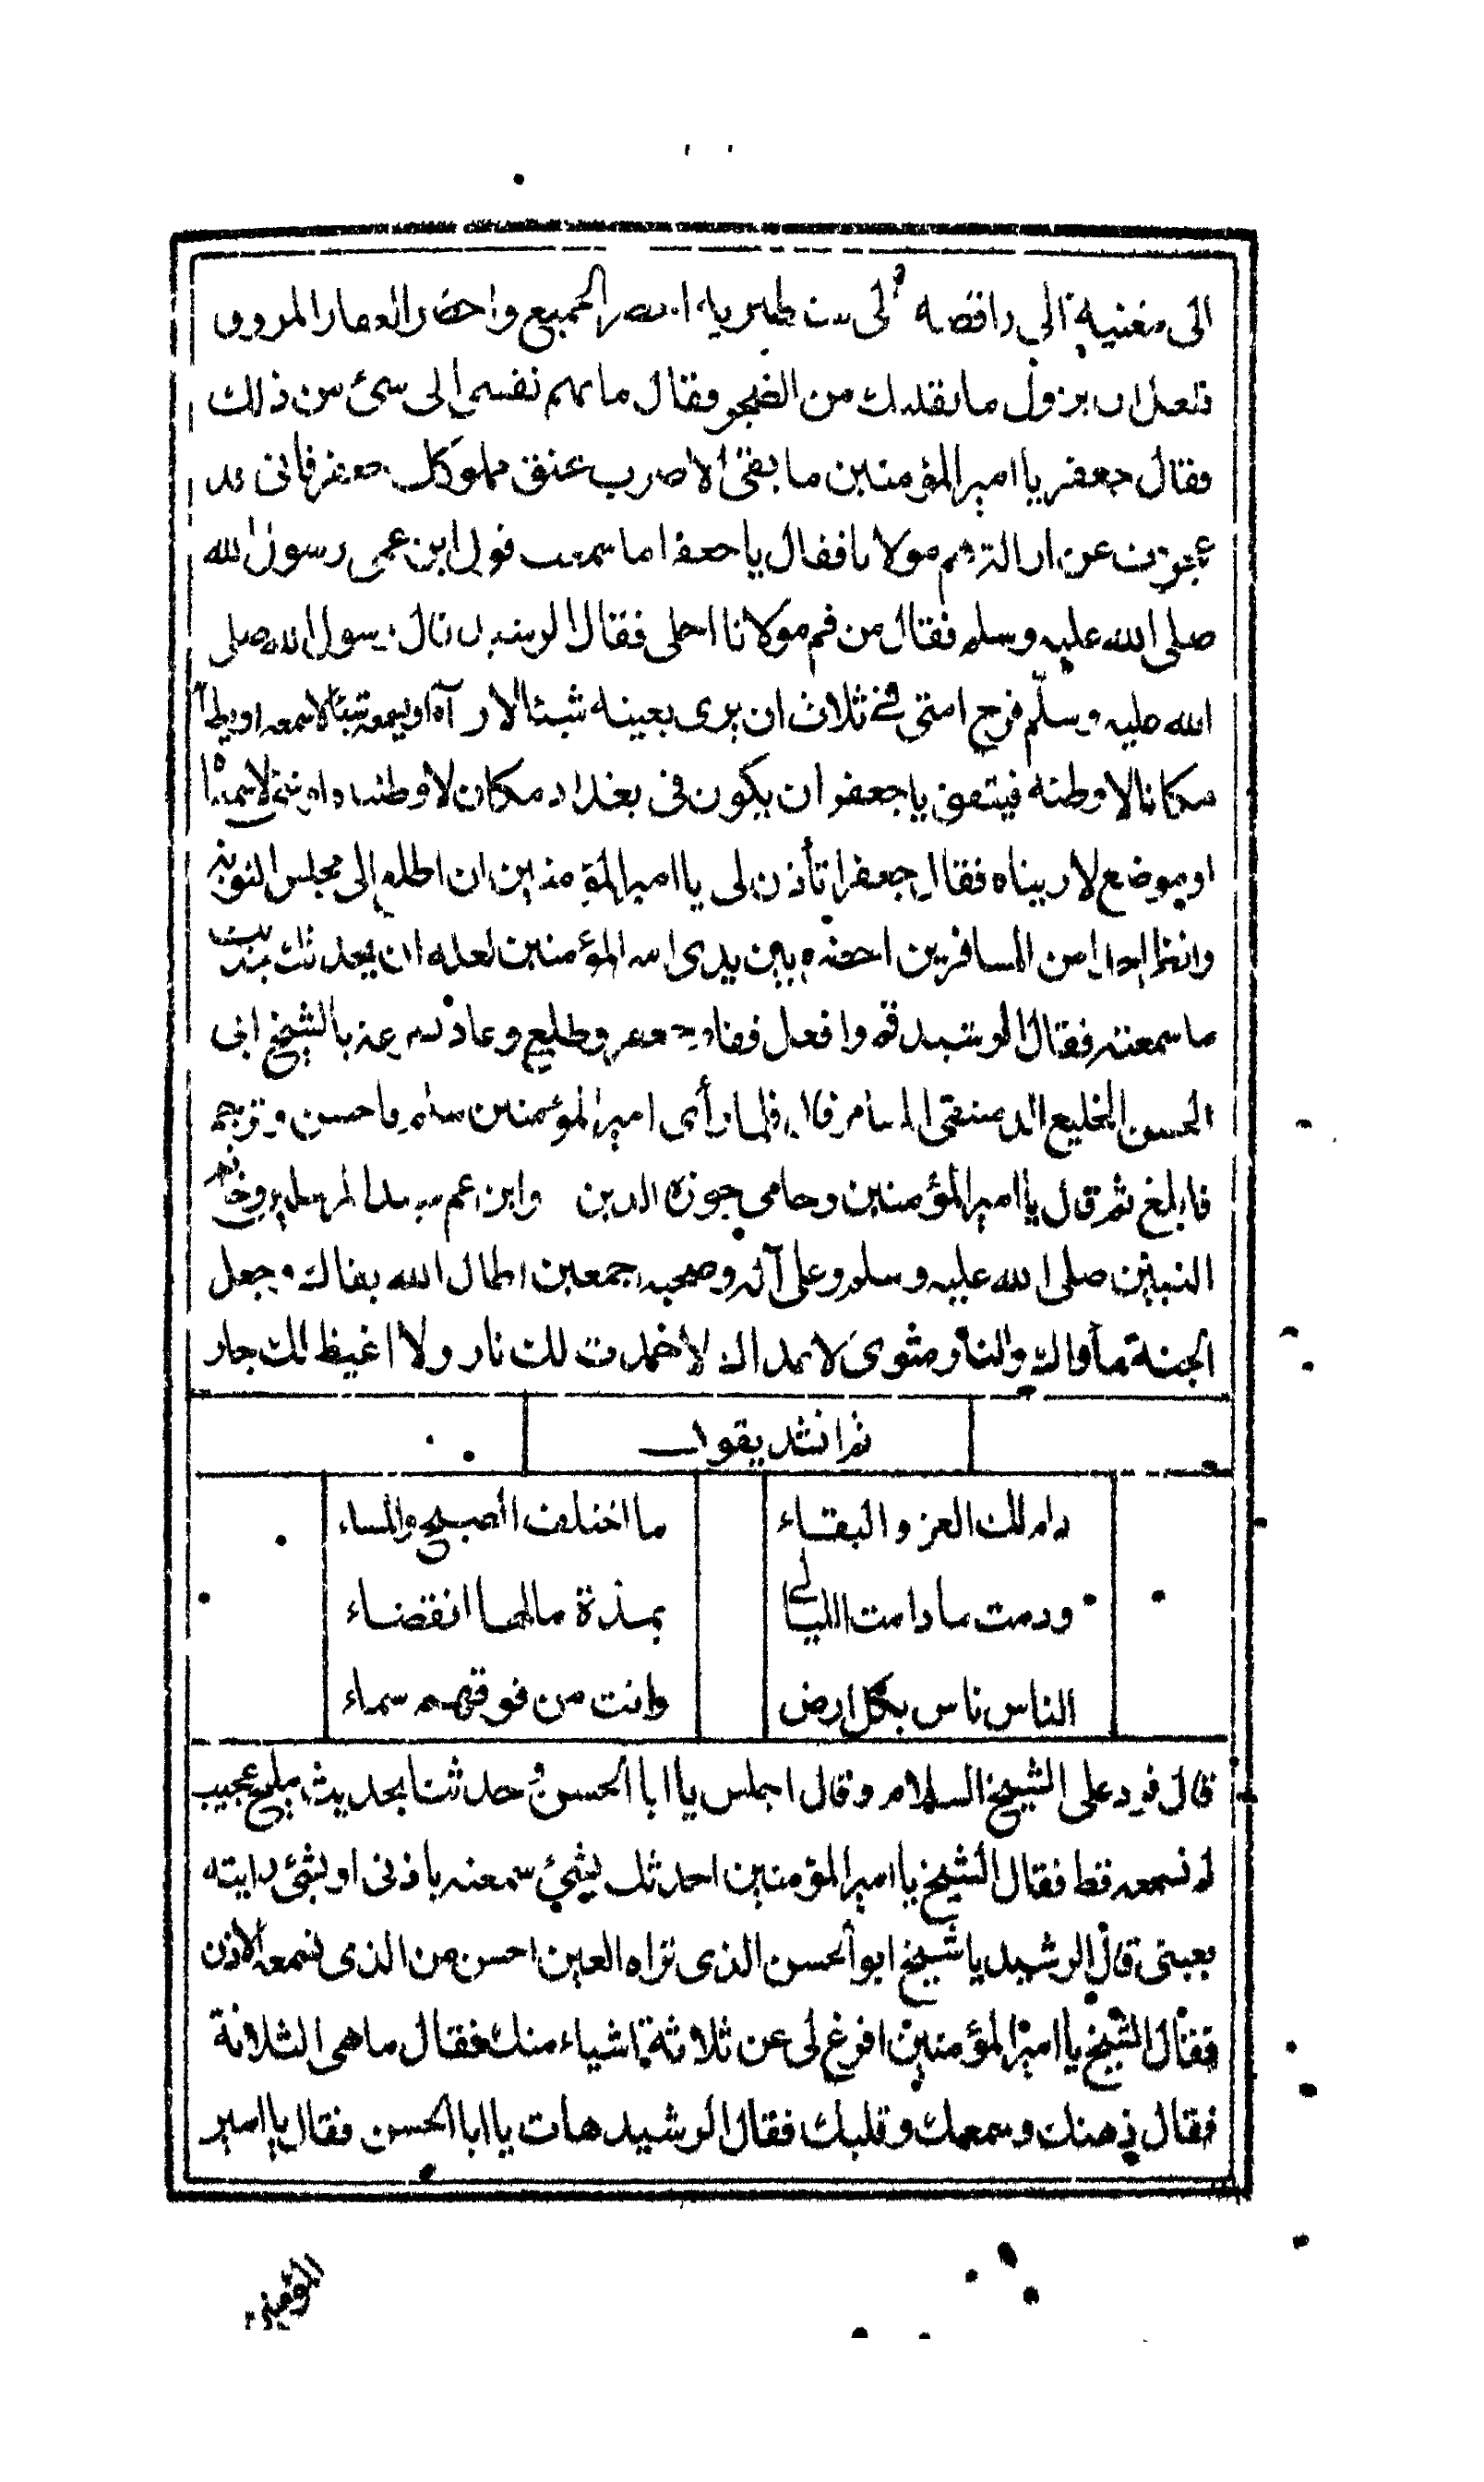 الى مغنية الى راقصه الى ست طبريه احضر الجميع واحضر العقار المروق
فلعل ان يزول ما بقلبك من الضجر وقال ما تهم نفسى الى شئ من ذلك
فقال جعفر يا امير المؤمنين ما بقى الا ضرب عنق مملوكك جعفر فانى قد
عجزت عن ازالة هم مولانا فقال يا جعفر اما سمعت قول ابن عمى رسول الله
صلى الله عليه وسلم فقال من فم مولانا احلى فقال الرشيد قال رسول الله صلى
الله عليه وسلم فرج امتى فى ثلاث ان يرى بعينه شيئا لا رآه او يسمع شيئا لا سمعه او يطأ
مكانا لا وطئه فيتفق يا جعفر ان يكون فى بغداد مكان لا وطئناه لا سمعنا
او موضع لا ريناه فقال جعفر اتأذن لى يا امير المؤمنين ان اطلع الى مجلس النوبة
وانظر احدا من المسافرين احضره بين يدى امير المؤمنين لعله ان يحدثك بحديث
ما سمعته فقال الرشيد قم وافعل فقام جعفر وطلع وعاد بالشيخ ابى
الحسن الخليع الدمشقى المسامر قال فلما رأى امير المؤمنين سلم فاحسن وترجم
فابلغ ثم قال يا امير المؤمنين وحامى حوزة الدين وابن عم سيد المرسلين وخاتم
النبيين صلى الله عليه وسلم وعلى آله وصحبه اجمعين اطال الله بقاك وجعل
الجنة مأواك والنار مثوى لاعداك لا خمدت لك نار ولا اغيظ لك جار
ثم انشد يقول
دام لك العز والبقاء ما اختلف الصبح والمساء
ودمت ما دامت الليالى بمدة مالها انقضاء
الناس ناس بكل ارض وانت من فوقهم سماء
قال فرد على الشيخ السلام وقال اجلس يا ابا الحسن وحدثنا بحديث مليح عجيب
لم نسمعه قط فقال الشيخ يا امير المؤمنين احدثك بشئ سمعته باذنى او بشئ رايته
بعينى قال الرشيد يا شيخ ابو الحسن الذى تراه العين احسن من الذى تسمعه الاذن
فقال الشيخ يا امير المؤمنين افرغ لى عن ثلاثة اشياء منك فقال ما هى الثلاثة
فقال ذهنك وسمعك وقلبك فقال الرشيد هات يا ابا الحسن فقال يا امير
المؤمنين